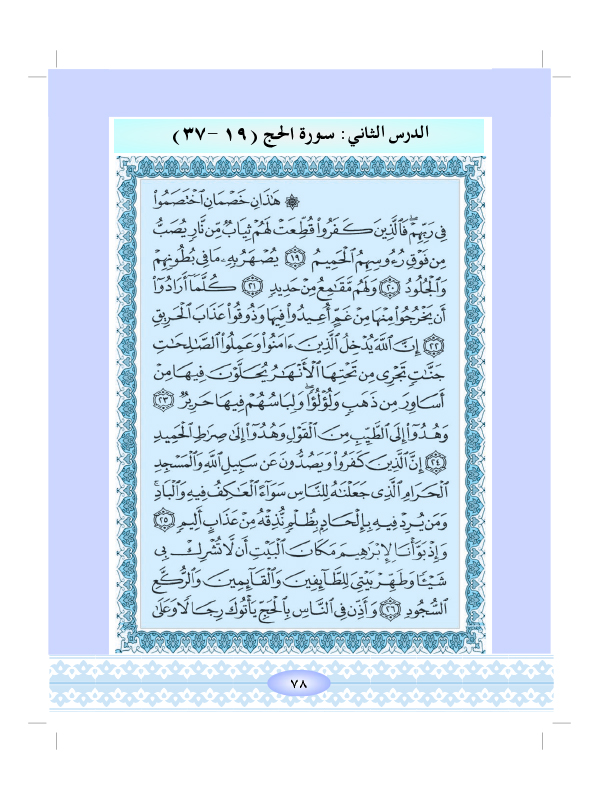 الدرس الثاني: سورة الحج (١٩ -٣٧)
۞ هَٰذَانِ خَصْمَانِ ٱخْتَصَمُواْ
فِى رَبِّهِمْۖ فَٱلَّذِينَ كَفَرُواْ قُطِّعَتْ لَهُمْ ثِيَابٌ مِّن نَّارٍ يُصَبُّ
مِن فَوْقِ رُءُوسِهِمُ ٱلْحَمِيمُ ١٩ يُصْهَرُ بِهِۦ مَا فِى بُطُونِهِمْ
وَٱلْجُلُودُ ٢٠ وَلَهُم مَّقَٰمِعُ مِنْ حَدِيدٍ ٢١ كُلَّمَآ أَرَادُوٓاْ
أَن يَخْرُجُواْ مِنْهَا مِنْ غَمٍّ أُعِيدُواْ فِيهَا وَذُوقُواْ عَذَابَ ٱلْحَرِيقِ
٢٢ إِنَّ ٱللَّهَ يُدْخِلُ ٱلَّذِينَ ءَامَنُواْ وَعَمِلُواْ ٱلصَّٰلِحَٰتِ
جَنَّٰتٍ تَجْرِى مِن تَحْتِهَا ٱلْأَنْهَٰرُ يُحَلَّوْنَ فِيهَا مِنْ
أَسَاوِرَ مِن ذَهَبٍ وَلُؤْلُؤًاۖ وَلِبَاسُهُمْ فِيهَا حَرِيرٌ ٢٣
وَهُدُوٓاْ إِلَى ٱلطَّيِّبِ مِنَ ٱلْقَوْلِ وَهُدُوٓاْ إِلَىٰ صِرَٰطِ ٱلْحَمِيدِ
٢٤ إِنَّ ٱلَّذِينَ كَفَرُواْ وَيَصُدُّونَ عَن سَبِيلِ ٱللَّهِ وَٱلْمَسْجِدِ
ٱلْحَرَامِ ٱلَّذِى جَعَلْنَٰهُ لِلنَّاسِ سَوَآءً ٱلْعَٰكِفُ فِيهِ وَٱلْبَادِۚ
وَمَن يُرِدْ فِيهِ بِإِلْحَادٍۭ بِظُلْمٍ نُّذِقْهُ مِنْ عَذَابٍ أَلِيمٍ ٢٥
وَإِذْ بَوَّأْنَا لِإِبْرَٰهِيمَ مَكَانَ ٱلْبَيْتِ أَن لَّا تُشْرِكْ بِى
شَيْـًٔا وَطَهِّرْ بَيْتِىَ لِلطَّآئِفِينَ وَٱلْقَآئِمِينَ وَٱلرُّكَّعِ
ٱلسُّجُودِ ٢٦ وَأَذِّن فِى ٱلنَّاسِ بِٱلْحَجِّ يَأْتُوكَ رِجَالًا وَعَلَىٰ
٧٨